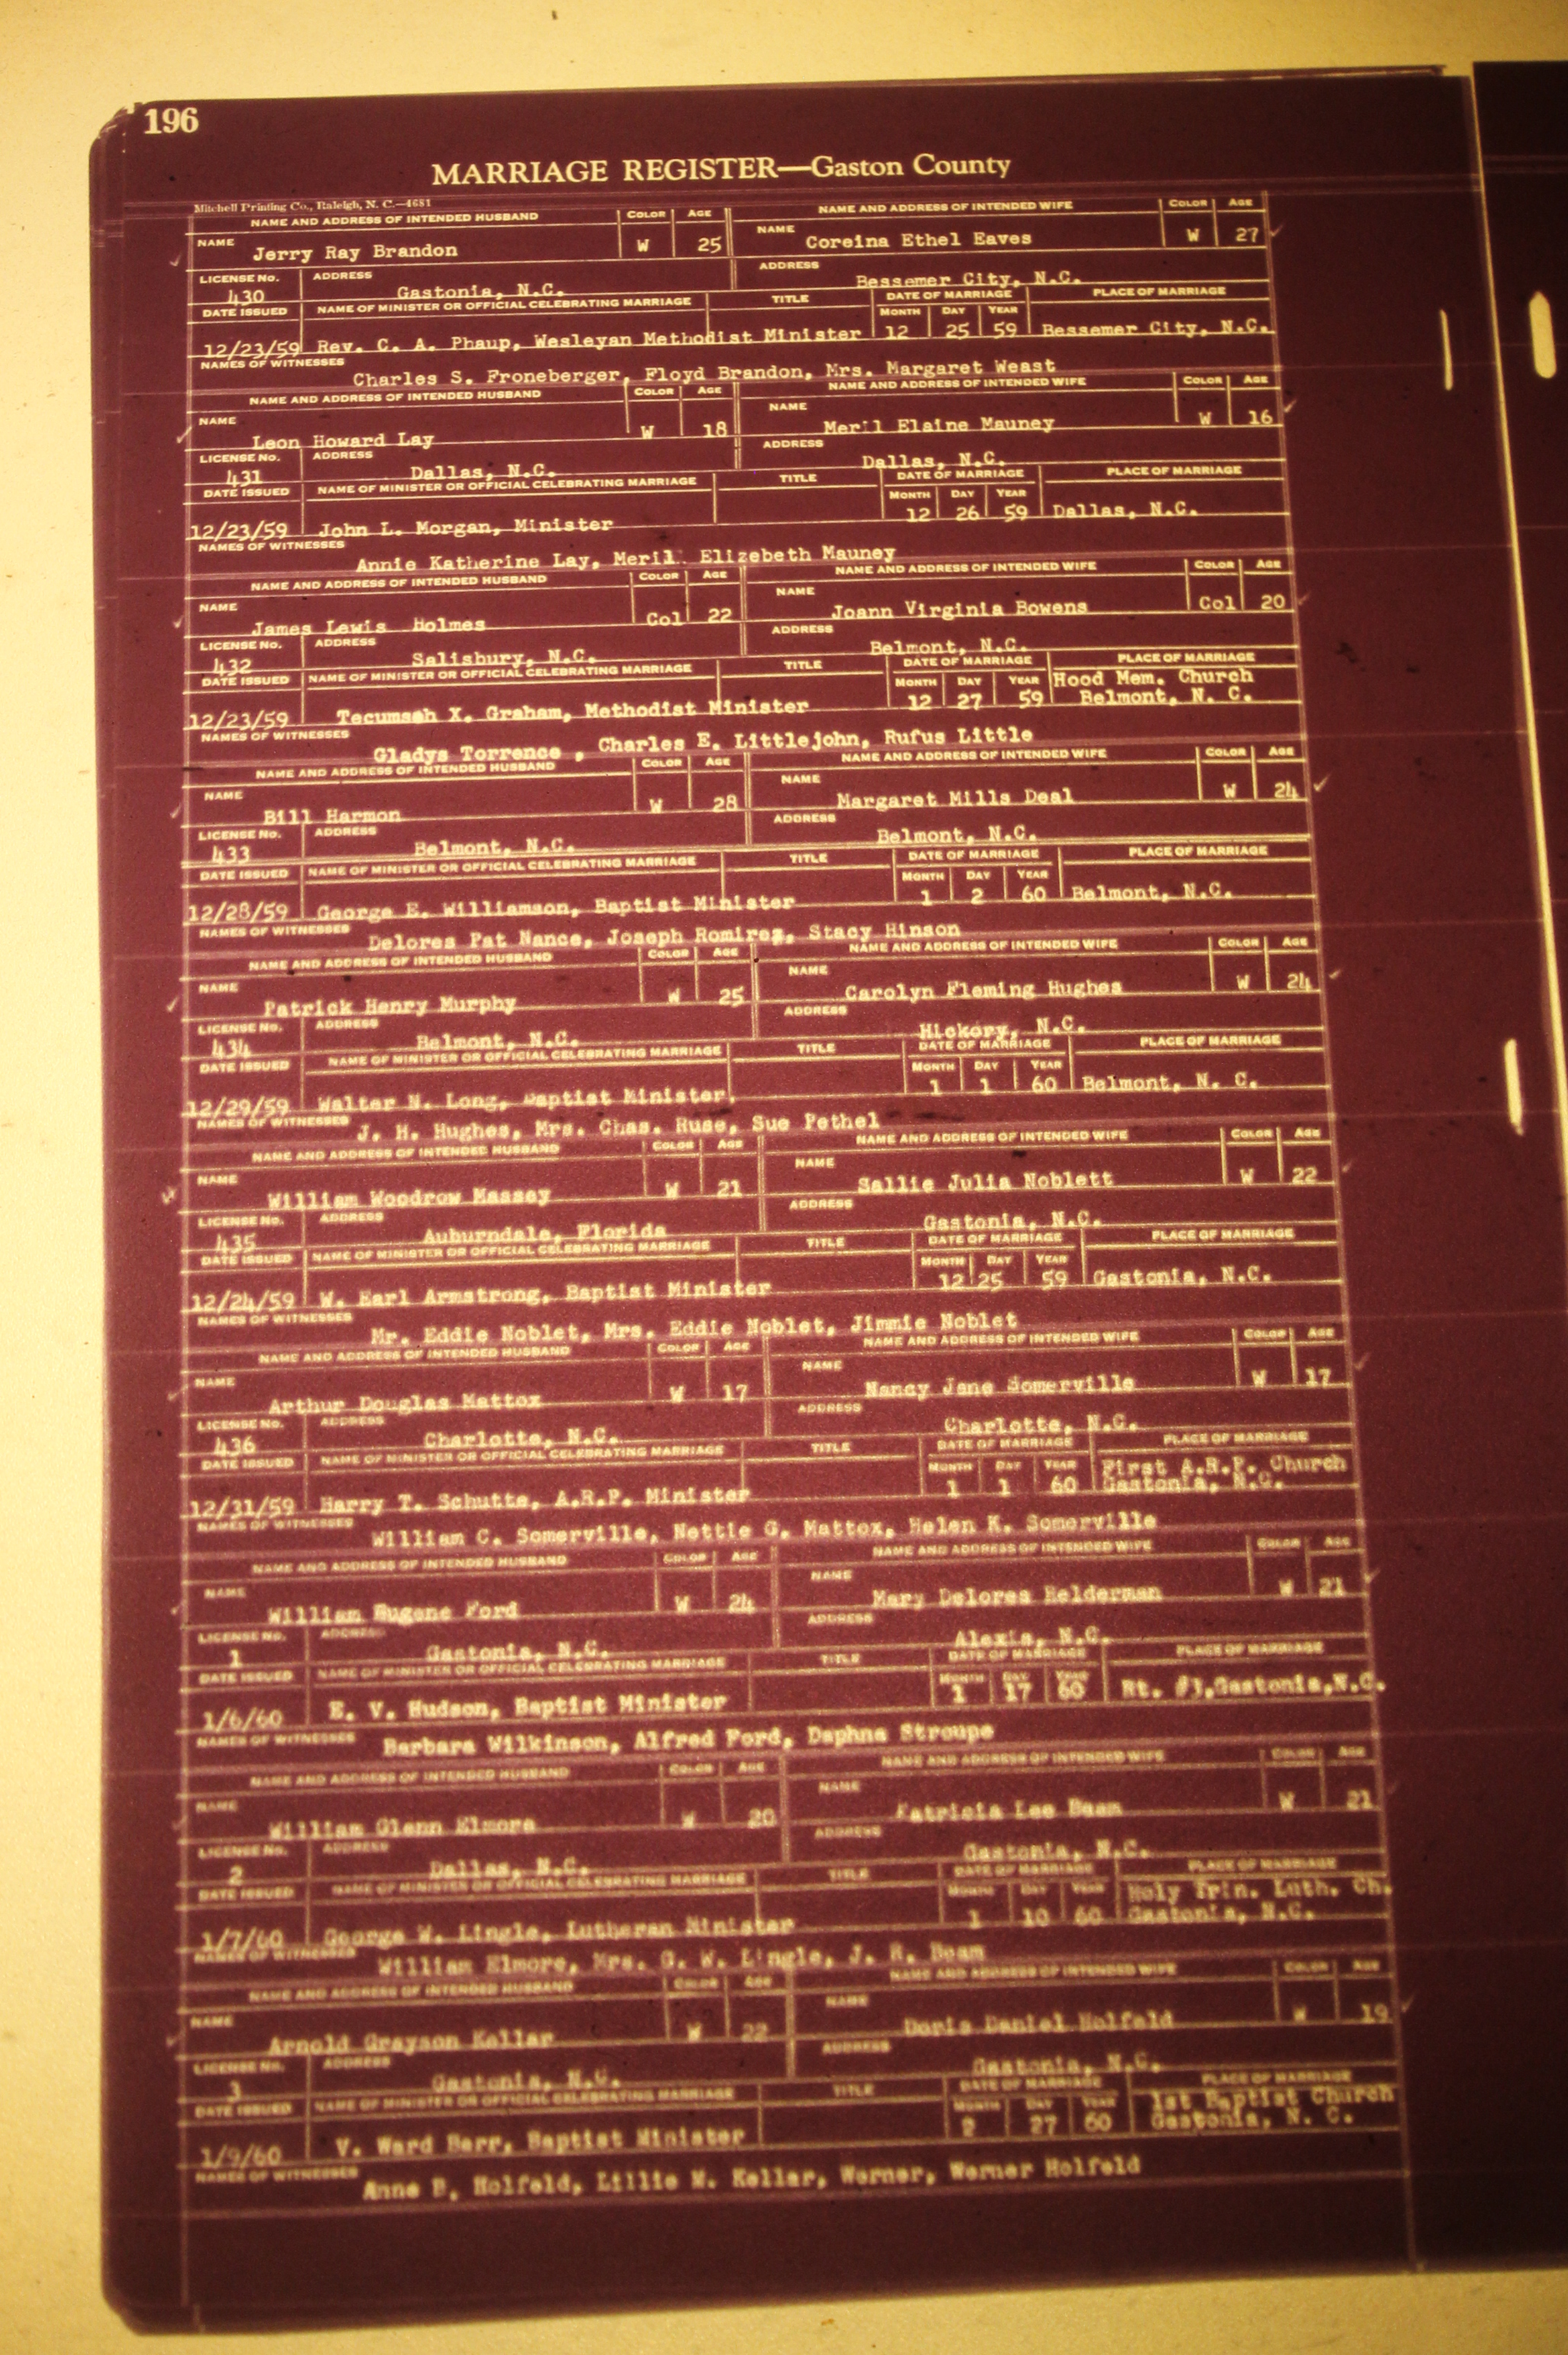 196
MARRIAGE REGISTER—Gaston County
Mitchell Printing Co., Raleigh, N. C.—4681
NAME AND ADDRESS OF INTENDED HUSBAND COLOR AGE NAME AND ADDRESS OF INTENDED WIFE COLOR AGE
NAME Jerry Ray Brandon W 25 NAME Coreina Ethel Eaves W 27
LICENSE No. ADDRESS ADDRESS
430 Gastonia, N.C. Bessemer City, N.C.
DATE ISSUED NAME OF MINISTER OR OFFICIAL CELEBRATING MARRIAGE TITLE DATE OF MARRIAGE PLACE OF MARRIAGE
MONTH DAY YEAR
12/23/59 Rev. C. A. Phaup, Wesleyan Methodist Minister 12 25 59 Bessemer City, N.C.
NAMES OF WITNESSES Charles S. Froneberger, Floyd Brandon, Mrs. Margaret Weast
NAME AND ADDRESS OF INTENDED HUSBAND COLOR AGE NAME AND ADDRESS OF INTENDED WIFE COLOR AGE
NAME Leon Howard Lay W 18 NAME Meril Elaine Mauney W 16
LICENSE No. ADDRESS ADDRESS
431 Dallas, N.C. Dallas, N.C.
DATE ISSUED NAME OF MINISTER OR OFFICIAL CELEBRATING MARRIAGE TITLE DATE OF MARRIAGE PLACE OF MARRIAGE
MONTH DAY YEAR
12/23/59 John L. Morgan, Minister 12 26 59 Dallas, N.C.
NAMES OF WITNESSES Annie Katherine Lay, Meril Elizebeth Mauney
NAME AND ADDRESS OF INTENDED HUSBAND COLOR AGE NAME AND ADDRESS OF INTENDED WIFE COLOR AGE
NAME James Lewis Holmes Col 22 NAME Joann Virginia Bowens Col 20
LICENSE No. ADDRESS ADDRESS
432 Salisbury, N.C. Belmont, N.C.
DATE ISSUED NAME OF MINISTER OR OFFICIAL CELEBRATING MARRIAGE TITLE DATE OF MARRIAGE PLACE OF MARRIAGE
MONTH DAY YEAR Hood Mem. Church
12/23/59 Tecumseh X. Graham, Methodist Minister 12 27 59 Belmont, N. C.
NAMES OF WITNESSES Gladys Torrence , Charles E. Littlejohn, Rufus Little
NAME AND ADDRESS OF INTENDED HUSBAND COLOR AGE NAME AND ADDRESS OF INTENDED WIFE COLOR AGE
NAME Bill Harmon W 28 NAME Margaret Mills Deal W 24
LICENSE No. ADDRESS ADDRESS
433 Belmont, N.C. Belmont, N.C.
DATE ISSUED NAME OF MINISTER OR OFFICIAL CELEBRATING MARRIAGE TITLE DATE OF MARRIAGE PLACE OF MARRIAGE
MONTH DAY YEAR
12/28/59 George E. Williamson, Baptist Minister 1 2 60 Belmont, N.C.
NAMES OF WITNESSES Delores Pat Nance, Joseph Romirez, Stacy Hinson
NAME AND ADDRESS OF INTENDED HUSBAND COLOR AGE NAME AND ADDRESS OF INTENDED WIFE COLOR AGE
NAME Patrick Henry Murphy W 25 NAME Carolyn Fleming Hughes W 24
LICENSE No. ADDRESS ADDRESS
434 Belmont, N.C. Hickory, N.C.
DATE ISSUED NAME OF MINISTER OR OFFICIAL CELEBRATING MARRIAGE TITLE DATE OF MARRIAGE PLACE OF MARRIAGE
MONTH DAY YEAR
12/29/59 Walter N. Long, Baptist Minister. 1 1 60 Belmont, N. C.
NAMES OF WITNESSES J. H. Hughes, Mrs. Chas. Ruse, Sue Pethel
NAME AND ADDRESS OF INTENDED HUSBAND COLOR AGE NAME AND ADDRESS OF INTENDED WIFE COLOR AGE
NAME William Woodrow Massey W 21 NAME Sallie Julia Noblett W 22
LICENSE No. ADDRESS ADDRESS
435 Auburndale, Florida Gastonia, N.C.
DATE ISSUED NAME OF MINISTER OR OFFICIAL CELEBRATING MARRIAGE TITLE DATE OF MARRIAGE PLACE OF MARRIAGE
MONTH DAY YEAR
12/24/59 W. Earl Armstrong, Baptist Minister 12 25 59 Gastonia, N.C.
NAMES OF WITNESSES Mr. Eddie Noblet, Mrs. Eddie Noblet, Jimmie Noblet
NAME AND ADDRESS OF INTENDED HUSBAND COLOR AGE NAME AND ADDRESS OF INTENDED WIFE COLOR AGE
NAME Arthur Douglas Mattox W 17 NAME Nancy Jane Somerville W 17
LICENSE No. ADDRESS ADDRESS
436 Charlotte, N.C. Charlotte, N.C.
DATE ISSUED NAME OF MINISTER OR OFFICIAL CELEBRATING MARRIAGE TITLE DATE OF MARRIAGE PLACE OF MARRIAGE
MONTH DAY YEAR First A.R.P. Church
12/31/59 Harry T. Schutte, A.R.P. Minister 1 1 60 Gastonia, N.C.
NAMES OF WITNESSES William C. Somerville, Nettie G. Mattox, Helen K. Somerville
NAME AND ADDRESS OF INTENDED HUSBAND COLOR AGE NAME AND ADDRESS OF INTENDED WIFE COLOR AGE
NAME William Eugene Ford W 24 NAME Mary Delores Helderman W 21
LICENSE No. ADDRESS ADDRESS
1 Gastonia, N.C. Alexis, N.C.
DATE ISSUED NAME OF MINISTER OR OFFICIAL CELEBRATING MARRIAGE TITLE DATE OF MARRIAGE PLACE OF MARRIAGE
MONTH DAY YEAR
1/6/60 E. V. Hudson, Baptist Minister 1 17 60 Rt. #3,Gastonia,N.C.
NAMES OF WITNESSES Barbara Wilkinson, Alfred Ford, Daphna Stroupe
NAME AND ADDRESS OF INTENDED HUSBAND COLOR AGE NAME AND ADDRESS OF INTENDED WIFE COLOR AGE
NAME William Glenn Elmore W 20 NAME Patricia Lee Beam W 21
LICENSE No. ADDRESS ADDRESS
2 Dallas, N.C. Gastonia, N.C.
DATE ISSUED NAME OF MINISTER OR OFFICIAL CELEBRATING MARRIAGE TITLE DATE OF MARRIAGE PLACE OF MARRIAGE
MONTH DAY YEAR Holy Trin. Luth. Ch.
1/7/60 George W. Lingle, Lutheran Minister 1 10 60 Gastonia, N.C.
NAMES OF WITNESSES William Elmore, Mrs. G. W. Lingle, J. R. Beam
NAME AND ADDRESS OF INTENDED HUSBAND COLOR AGE NAME AND ADDRESS OF INTENDED WIFE COLOR AGE
NAME Arnold Grayson Kellar W 22 NAME Doris Daniel Holfeld W 19
LICENSE No. ADDRESS ADDRESS
3 Gastonia, N.C. Gastonia, N.C.
DATE ISSUED NAME OF MINISTER OR OFFICIAL CELEBRATING MARRIAGE TITLE DATE OF MARRIAGE PLACE OF MARRIAGE
MONTH DAY YEAR 1st Baptist Church
1/9/60 V. Ward Barr, Baptist Minister 2 27 60 Gastonia, N. C.
NAMES OF WITNESSES Anne B. Holfeld, Lillie M. Kellar, Werner, Werner Holfeld